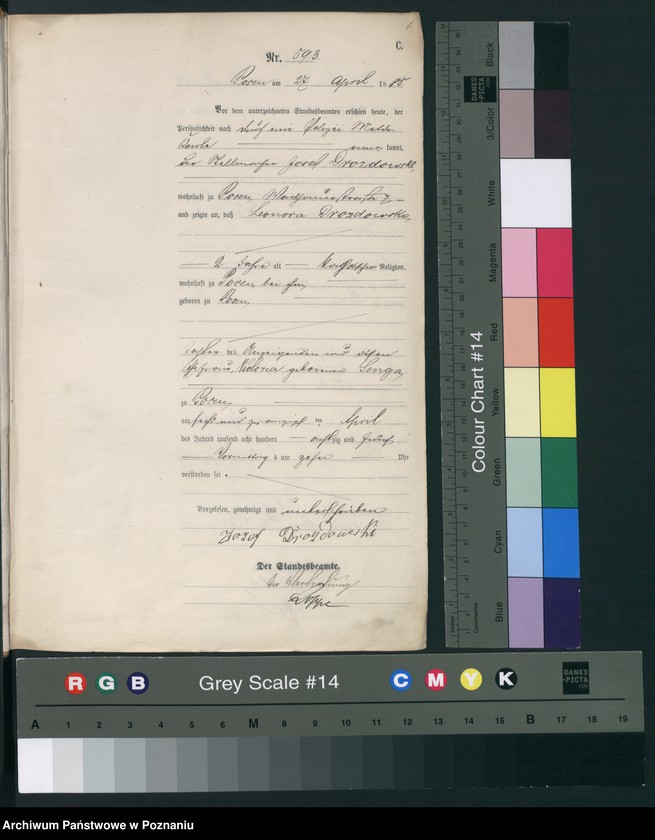 C.
Nr. 593.
Posen am 27 April 1885
Vor dem unterzeichneten Standesbeamten erschien heute, der
Persönlichkeit nach durch eine Polizei Melde
karte — aner kannt,
der Stellmacher Josef Drozdowski,
wohnhaft zu Posen,
und zeigte an, daß Leonora Drozdowska,
2 Jahre alt — katholischer Religion,
wohnhaft zu Posen bei ihm,
geboren zu Posen,
Tochter des Anzeigenden und dessen
Ehefrau, Victoria geborene Senga,
zu Posen,
am sechs und zwanzigsten April
des Jahres tausend acht hundert — achtzig und fünf
Vormittags um zehn — Uhr
verstorben sei.
Vorgelesen, genehmigt und unterschrieben
Josef Drozdowski
Der Standesbeamte.
In Vertretung
Black
3/Color
White
Magenta
Red
Yellow
Green
Cyan
Blue
Colour Chart #14
DANES
-PICTA
.COM
Inches
Centimetres
R G B Grey Scale #14 C M Y K
DANES
-PICTA
.COM
A 1 2 3 4 5 6 M 8 9 10 11 12 13 14 15 B 17 18 19
Archiwum Państwowe w Poznaniu